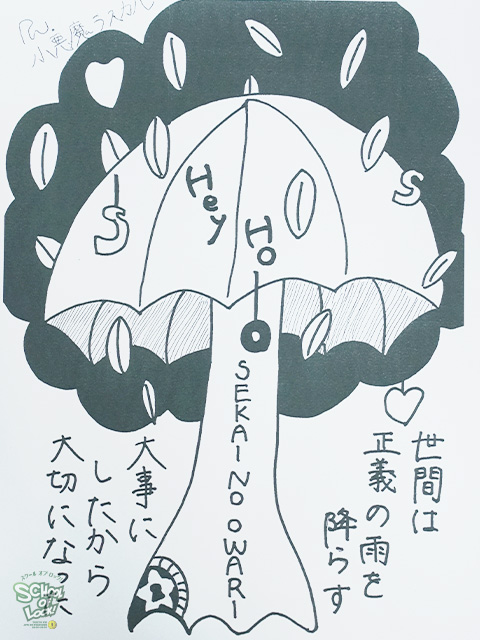 RN.
小悪魔ラスカル
Hey
Ho
S
S
SEKAI NO OWARI
世間は
正義の雨を
降らす
大事に
したから
大切になった
スクール オブ ロック
SCHOOL
OF
LOCK!